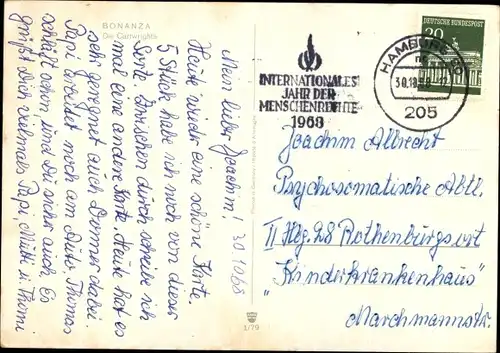 BONANZA
Die Cartwrights
30.10.68
Mein lieber Joachim!
Heute wieder eine schöne Karte.
5 Stück habe ich noch von dieser
Sorte. Zwischendurch schreibe ich
mal eine andere Karte. Heute hat es
sehr geregnet auch Donner dabei.
Papi arbeitet noch am Auto. Thomas
schläft schon, und Du sicher auch. Es
grüßt Dich vielmals Papi, Mutti u. Thomi
1/79
INTERNATIONALES
JAHR DER
MENSCHENRECHTE
1968
HAMBURG
30.10.68
205
DEUTSCHE BUNDESPOST
20
Joachim Albrecht
Psychosomatische Abtl.
II Hbg. 28 Rothenburgsort
"Kinderkrankenhaus"
Marchmannstr.